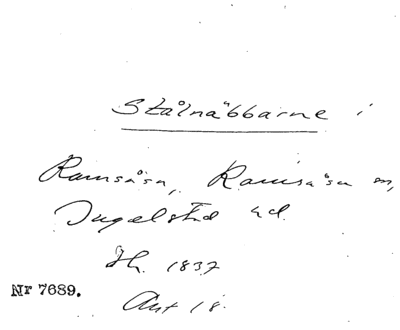 Stålnäbbarne i
Ramsåsa, Ramsåsa sn,
Ingelstad hd.
Ih. 1837
Nr 7689.
Ant 18.